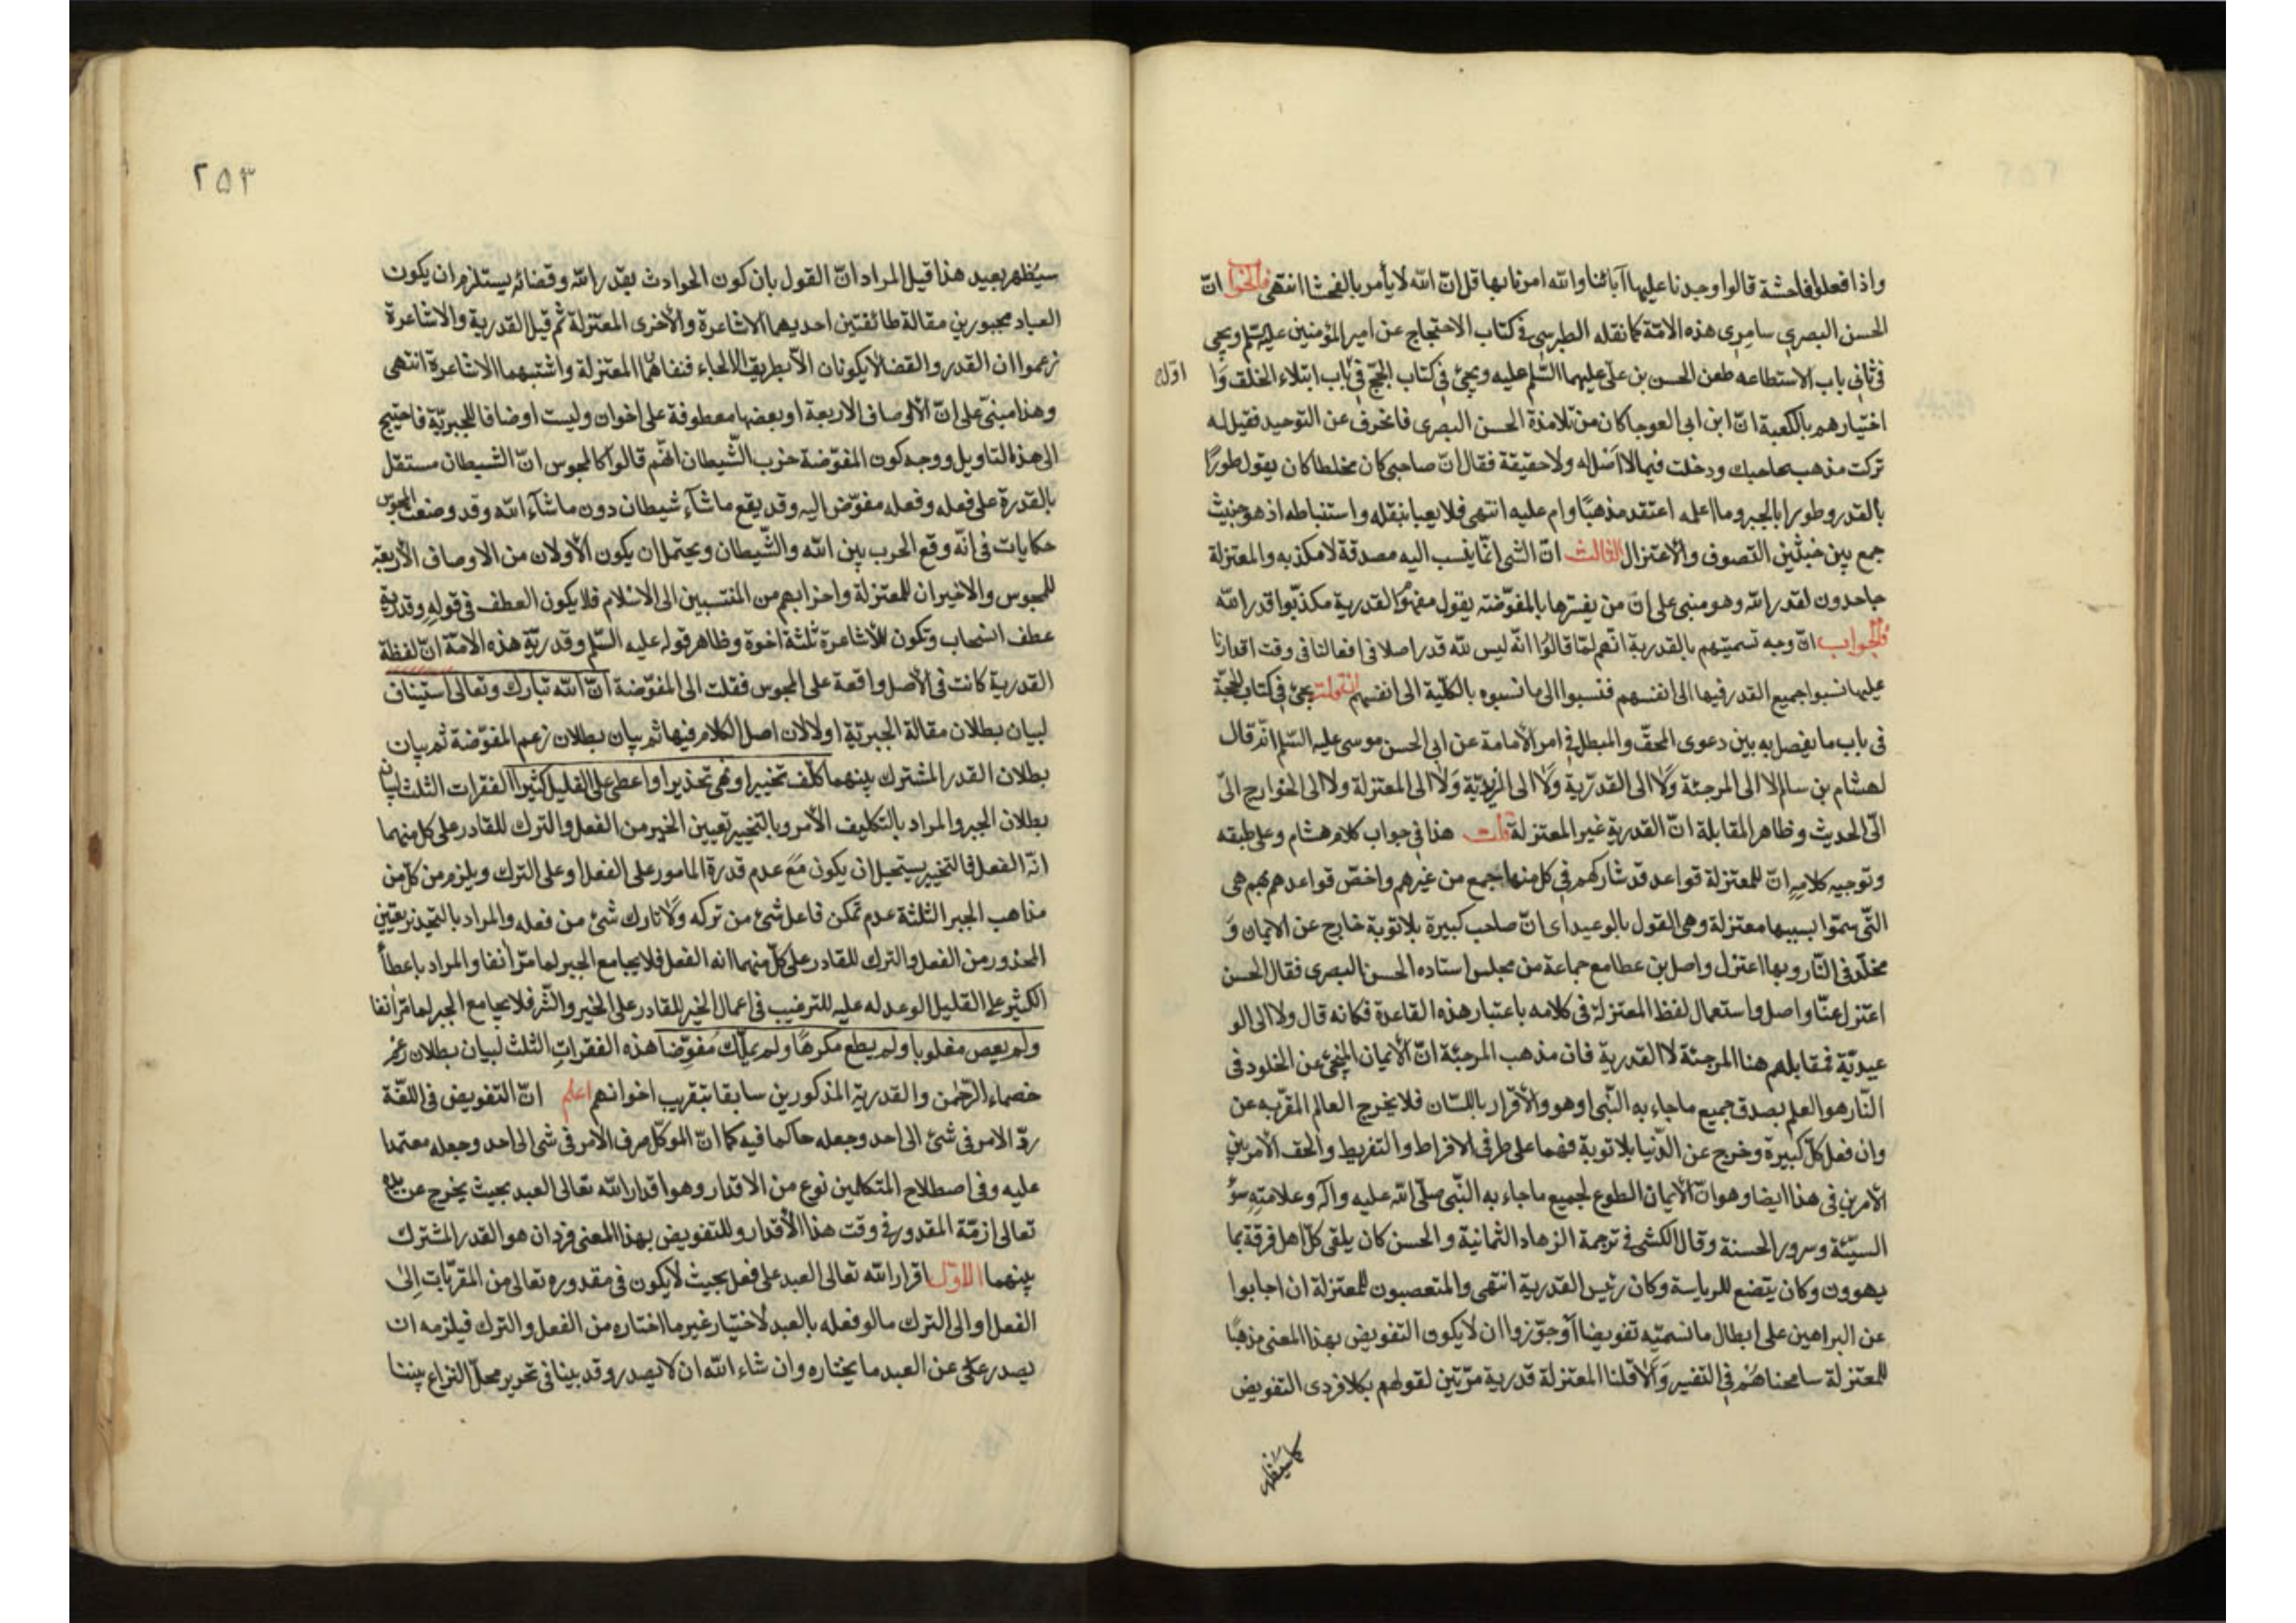 واذا فعلوا فاحشة قالوا وجدنا عليها آبائنا والله امرنا بها قل انّ الله لا يأمر بالفحشا انتهى فالجوا انّ
الحسن البصري سامري هذه الامّة كما نقله الطبرسي في كتاب الاحتجاج عن امير المؤمنين عليه السّلم ويجئ
في ثاني باب الاستطاعه طعن الحسن بن علي عليهما السّلم عليه ويجئ في كتاب الحجّ في باب ابتلاء الخلق وَا
اوّل
اختيارهم بالكعبة انّ ابن ابي العوجا كان من تلامذة الحسن البصرى فانحرف عن التوحيد فقيل له
تركت مذهب صاحبك ودخلت فيما لا اصل له ولا حقيقة فقال انّ صاحبي كان مخلطا كان يقول طورًا
بالقدر وطورا بالجبر وما اعلمه اعتقد مذهبًا دام عليه انتهى فلا يعبا بنقله واستنباطه اذ هو خبيث
جمع بين خبثين التصوف والاعتزال الثالث انّ الشئ انّما ينسب اليه مصدقة لا مكذبه والمعتزلة
جاحدون لقدر الله وهو مبنى على انّ من يفسّرها بالمفوّضة يقول مفهوم القدرية مكذّبوا قدر الله
فالجواب انّ وجه تسميتهم بالقدرية انّهم لمّا قالوا انّه ليس لله قدر اصلا في افعالنا في وقت اقدارنا
عليها نسبوا جميع القدر فيها الى انفسهم فنسبوا الى ما نسبوه بالكلّية الى انفسهم ان قلت يجئ في كتاب الحجّة
في باب ما يفصل به بين دعوى المحقّ والمبطل في امر الامامة عن ابي الحسن موسى عليه السّلم انّه قال
لهشام بن سالم لا الى المرجئة وَلا الى القدريّة وَلا الى الزيديّة وَلا الى المعتزلة ولا الى الخوارج اليّ
اليّ الحديث وظاهر المقابلة انّ القدرية غير المعتزلة قلت هذا في جواب كلام هشام وعلى طبقه
وتوجيه كلامه انّ للمعتزلة قواعد قد شاركهم في كل منها جمع من غيرهم واخصّ قواعدهم بهم هي
التّي سمّوا بسببها معتزلة وهي القول بالوعيد اى انّ صاحب كبيرة بلا توبة خارج عن الايمان وَ
مخلّد في النّار وبها اعتزل واصل بن عطا مع جماعة من مجلس استاده الحسن البصرى فقال الحسن
اعتزل عنّا واصل واستعمال لفظ المعتزلة في كلامه باعتبار هذه القاعدة فكانه قال ولا الى الو
عيديّة فمقابلهم هنا المرجئة لا القدرية فان مذهب المرجئة انّ الايمان المنجئ عن الخلود في
النّار هو العلم بصدق جميع ما جاء به النّبي او هو والاقرار باللسّان فلا يخرج العالم المقرّ به عن
وان فعل كلّ كبيرة وخرج عن الدّنيا بلا توبة فهما على طرفي الافراط والتفريط والحق الامر بين
الامرين في هذا ايضا وهو انّ الايمان الطوع لجميع ما جاء به النّبي صلّى الله عليه وآله وعلامته سوُ
السيّئة وسرور الحسنة وقال الكشي في ترجمة الزهاد الثمانية والحسن كان يلقى كلّ اهل فرقة بما
يهوون وكان يتضع للرياسة وكان رئيس القدرية انتهى والمتعصبون للمعتزلة ان اجابوا
عن البراهين على ابطال ما نسميّه تفويضا أو جوّزوا ان لا يكون التفويض بهذا المعنى مذهبًا
للمعتزلة سامحناهُم في التفسير وَالا قلنا المعتزلة قدرية مرّتين لقولهم بكلا فردي التفويض
كما سيظهر
٢٥٣
سيظهر بعيد هذا قيل المراد انّ القول بان كون الحوادث بقدر الله وقضائه يستلزم ان يكون
العباد مجبورين مقالة طائفتين احديهما الاشاعرة والاخرى المعتزلة ثم قيل القدرية والاشاعرة
زعموا ان القدر والقضا لا يكونان الاّ بطريق الالجاء فنفاهما المعتزلة واثبتهما الاشاعرة انتهى
وهذا مبنيّ على انّ الاوصاف الاربعة او بعضها معطوفة على اخوان وليست اوصافا للجبريّة فاحتيج
الى هذا التاويل ووجه كون المفوّضة حزب الشّيطان انّهم قالوا كالمجوس انّ الشيطان مستقل
بالقدرة على فعله وفعله مفوّض اليه وقد يقع ما شآء شيطان دون ما شآء الله وقد وضعت المجوس
حكايات في انّه وقع الحرب بين الله والشّيطان ويحتمل ان يكون الاولان من الاوصاف الاربعة
للمجوس والاخيران للمعتزلة واحزابهم من المنتسبين الى الاسلام فلا يكون العطف في قوله وقدرية
عطف انسحاب وتكون للاشاعرة ثلثة اخوة وظاهر قوله عليه السّلم وقدريّة هذه الامّة انّ لفظة
القدرية كانت في الاصل واقعة على المجوس فنقلت الى المفوّضة انّ الله تبارك وتعالى استيناف
لبيان بطلان مقالة الجبريّة اولا لان اصل الكلام فيها ثم بيان بطلان زعم المفوّضة ثم بيان
بطلان القدر المشترك بينهما كلّف تخييرا ونهى تحذيرا واعطى على القليل كثيرا الفقرات الثلث لبيان
بطلان الجبر والمراد بالتكليف الأمر وبالتخيير تعيين الخير من الفعل والترك للقادر على كل منهما
انّه الفعل فالتخيير يستحيل ان يكون مَع عدم قدرة المامور على الفعل او على الترك ويلزم من كلّ من
مذاهب الجبر الثلثة عدم تمكن فاعل شئ من تركه وَلا تارك شئ من فعله والمراد بالتحذير تعيين
المحذور من الفعل والترك للقادر على كلّ منهما انه الفعل فلا يجامع الجبر لما مرّ آنفا والمراد باعطآء
الكثير على القليل الوعد له عليه للترغيب في اعمال الخير للقادر على الخير والشّر فلا يجامع الجبر لما مرّ آنفا
ولم يعص مغلوبا ولم يطع مكرهًا ولم يملّك مُفوّضا هذه الفقرات الثلث لبيان بطلان زعم
خصماء الرّحمن والقدرية المذكورين سابقا بتقريب اخوانهم اعلم انّ التفويض في اللغّة
ردّ الامر في شئ الى احد وجعله حاكما فيه كما انّ الموكّل صرف الامر في شئ الى احد وجعله معتمدا
عليه وفي اصطلاح المتكلمين نوع من الاقدار وهو اقدار الله تعالى العبد بحيث يخرج عن يده
تعالى ازمّة المقدور في وقت هذا الأقدار وللتفويض بهذا المعنى فردان هو القدر المشترك
بينهما الاوّل اقرار الله تعالى العبد على فعل بحيث لا يكون في مقدوره تعالى من المقرّبات الى
الفعل او الى الترك ما لو فعله بالعبد لاختيار غير ما اختاره من الفعل والترك فيلزمه ان
يصدر على عن العبد ما يختاره وان شاء الله ان لا يصدر وقد بينا في تحرير محلّ النزاع بيننا